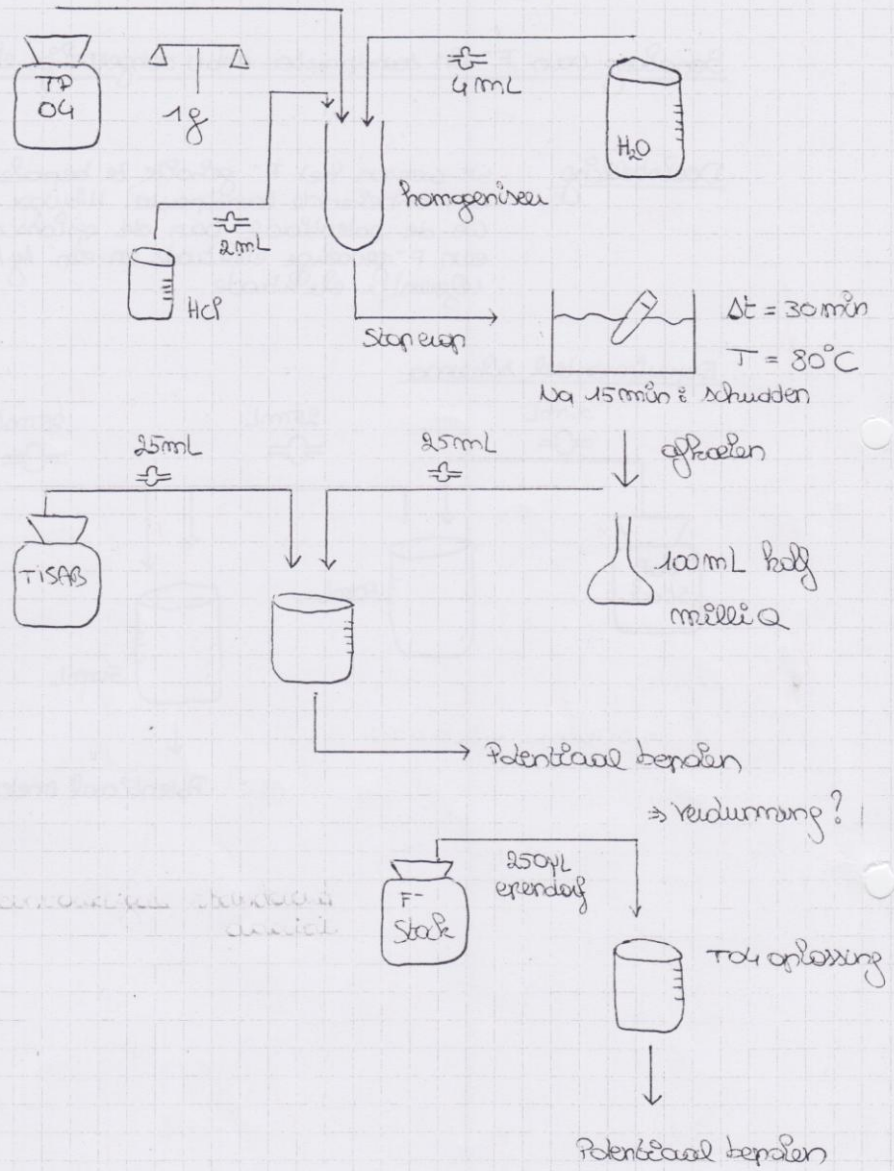 TP
04
1g
4mL
H₂O
homogeniseer
2mL
HCl
Stop erop
Δt = 30min
T = 80°C
Na 15min : schudden
afkoelen
25mL
25mL
TiSAB
100mL kolf
milliQ
Potentiaal bepalen
⇒ verdunning?
250µL
ependorf
F⁻
Stock
T04 oplossing
Potentiaal bepalen